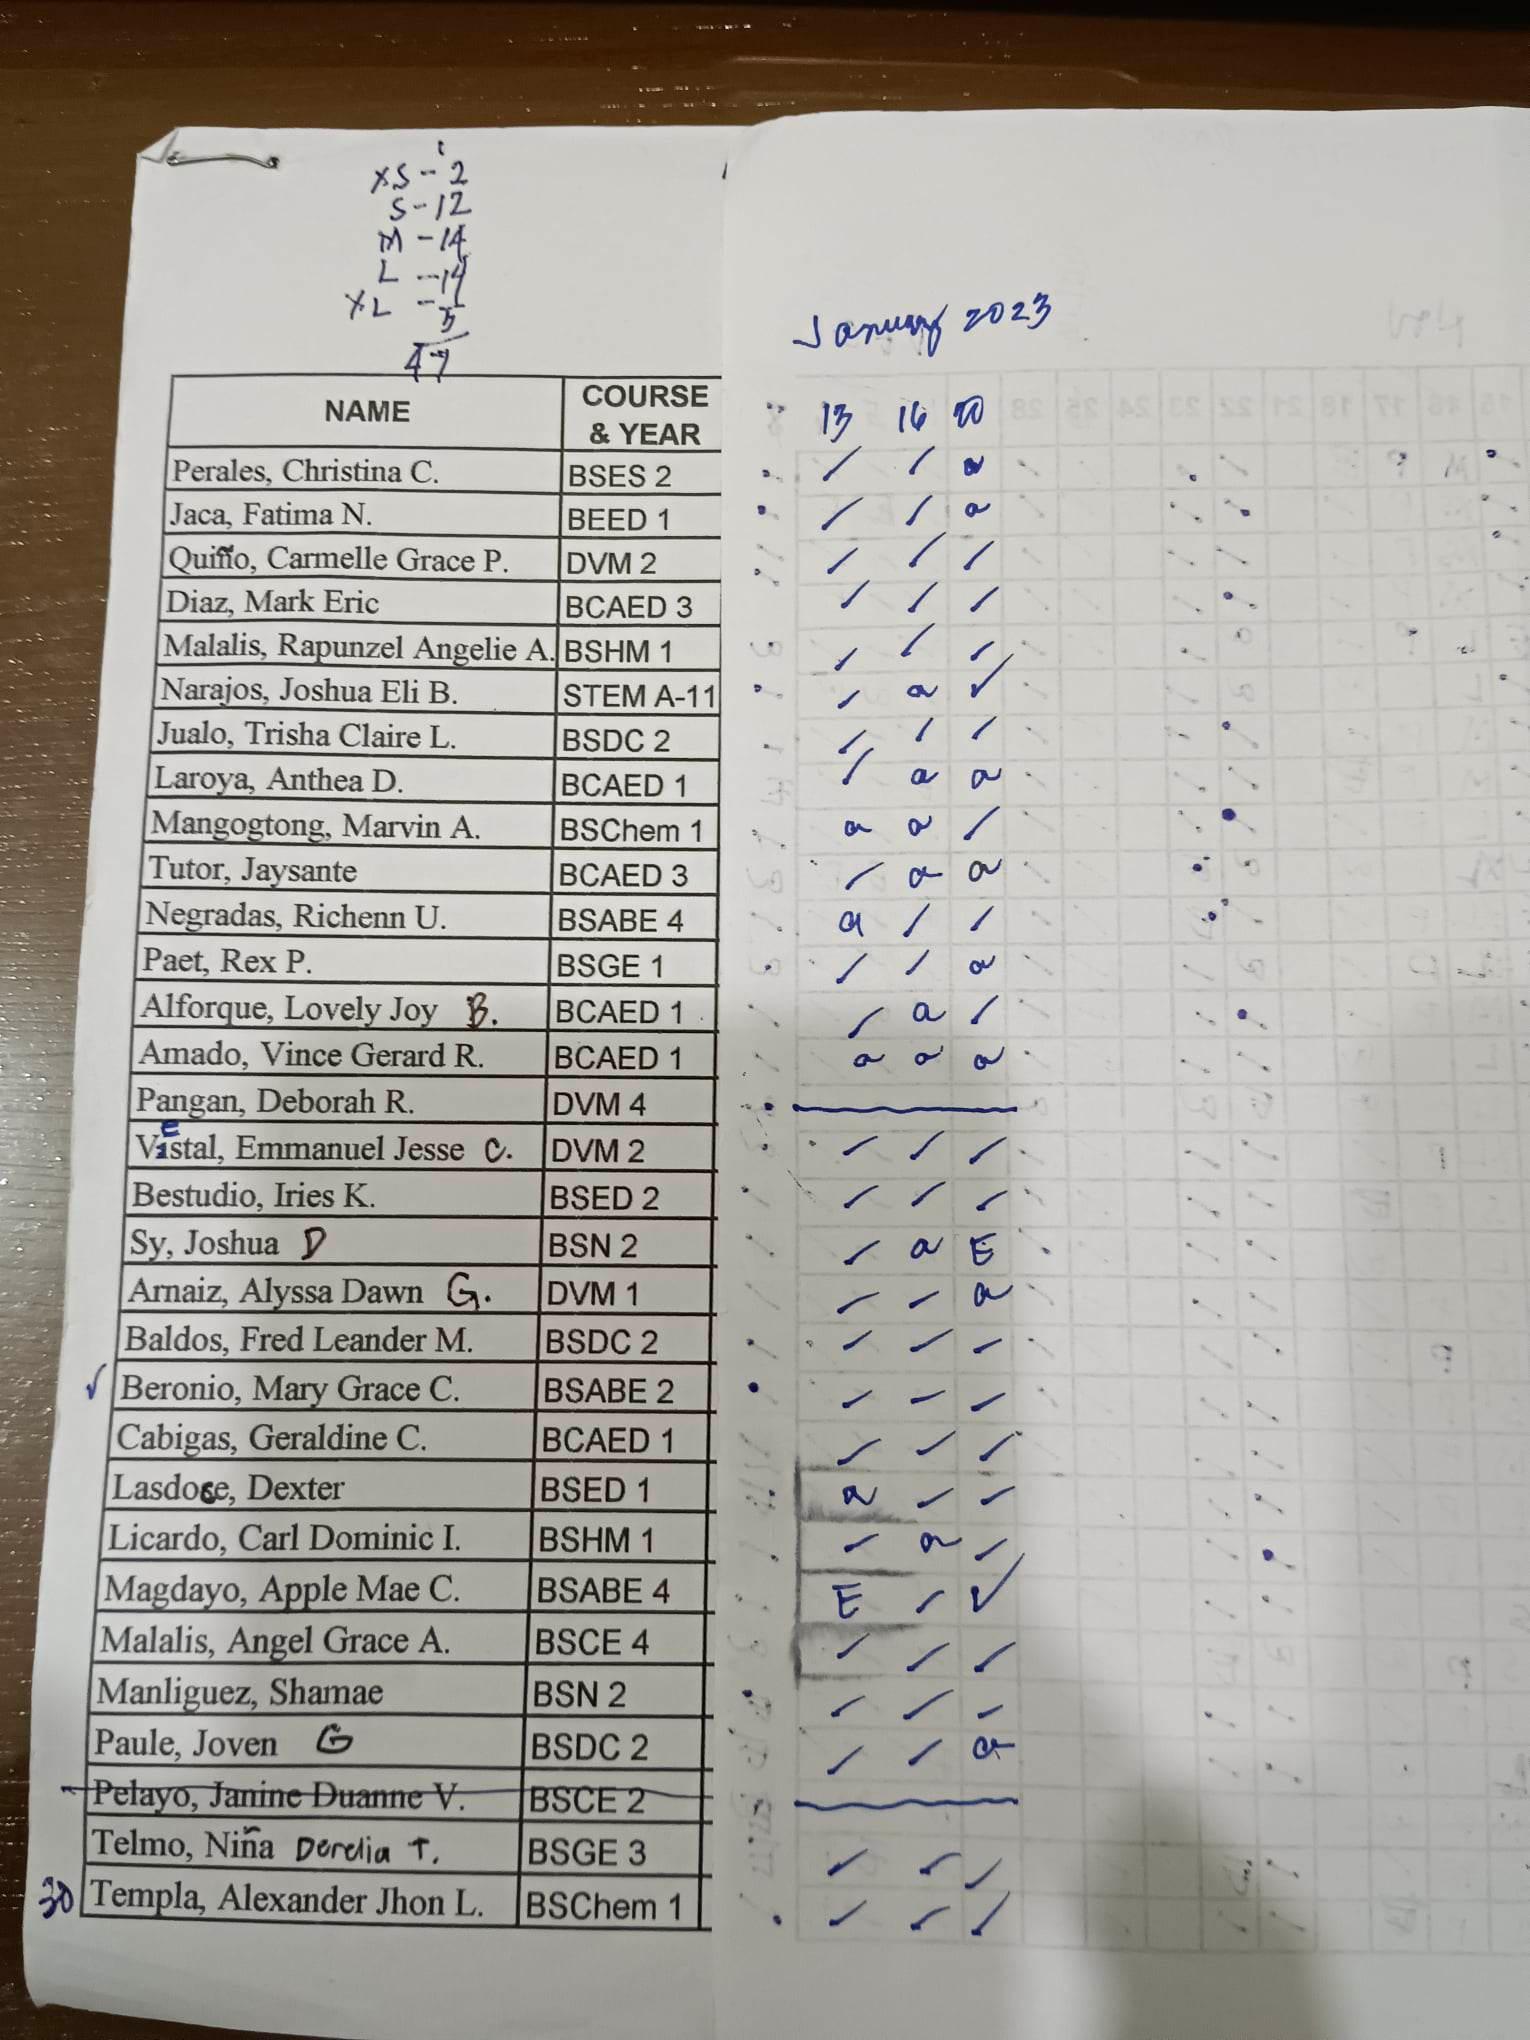 XS - 2
S - 12
M - 14
L - 14
XL - 5
47
January 2023
NAME COURSE & YEAR 13 16 20
Perales, Christina C. BSES 2 / / a
Jaca, Fatima N. BEED 1 / / a
Quiño, Carmelle Grace P. DVM 2 / / /
Diaz, Mark Eric BCAED 3 / / /
Malalis, Rapunzel Angelie A. BSHM 1 / / /
Narajos, Joshua Eli B. STEM A-11 / a ✓
Jualo, Trisha Claire L. BSDC 2 / / /
Laroya, Anthea D. BCAED 1 / a a
Mangogtong, Marvin A. BSChem 1 a a /
Tutor, Jaysante BCAED 3 / a a
Negradas, Richenn U. BSABE 4 a / /
Paet, Rex P. BSGE 1 / / a
Alforque, Lovely Joy B. BCAED 1 / a /
Amado, Vince Gerard R. BCAED 1 a a a
Pangan, Deborah R. DVM 4
Vestal, Emmanuel Jesse C. DVM 2 / / /
Bestudio, Iries K. BSED 2 / / /
Sy, Joshua D BSN 2 / a E
Arnaiz, Alyssa Dawn G. DVM 1 / / a
Baldos, Fred Leander M. BSDC 2 / / /
✓ Beronio, Mary Grace C. BSABE 2 / / /
Cabigas, Geraldine C. BCAED 1 / / /
Lasdoce, Dexter BSED 1 a / /
Licardo, Carl Dominic I. BSHM 1 / a /
Magdayo, Apple Mae C. BSABE 4 E / ✓
Malalis, Angel Grace A. BSCE 4 / / /
Manliguez, Shamae BSN 2 / / /
Paule, Joven G BSDC 2 / / a
Pelayo, Janine Duanne V. BSCE 2
Telmo, Niña Derelia T. BSGE 3 / / /
30 Templa, Alexander Jhon L. BSChem 1 / / /